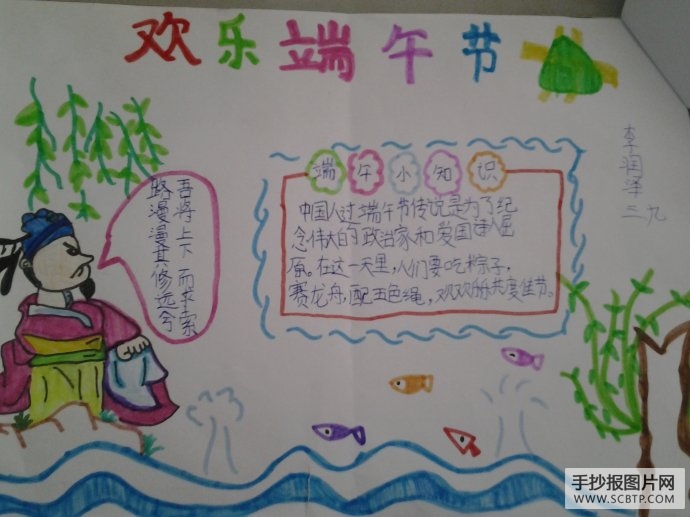 欢乐端午节
李润泽
三九
路漫漫其修远兮
吾将上下而求索
端午小知识
中国人过端午节传说是为了纪
念伟大的政治家和爱国诗人屈
原。在这一天里,人们要吃粽子,
赛龙舟,配五色绳,欢欢乐乐共度佳节。
手抄报图片网
WWW.SCBTP.COM